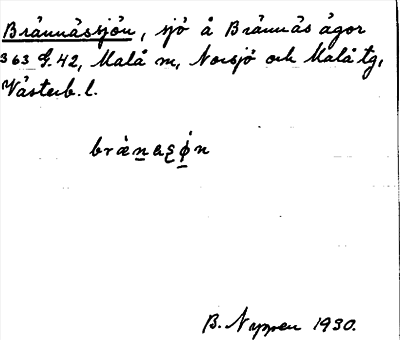 Brännässjön, sjö å Brännäs ägor
363 G.42, Malå m, Norsjö och Malå tg,
Västerb. l.
bränaʂø̀n
B. Nyppen 1930.